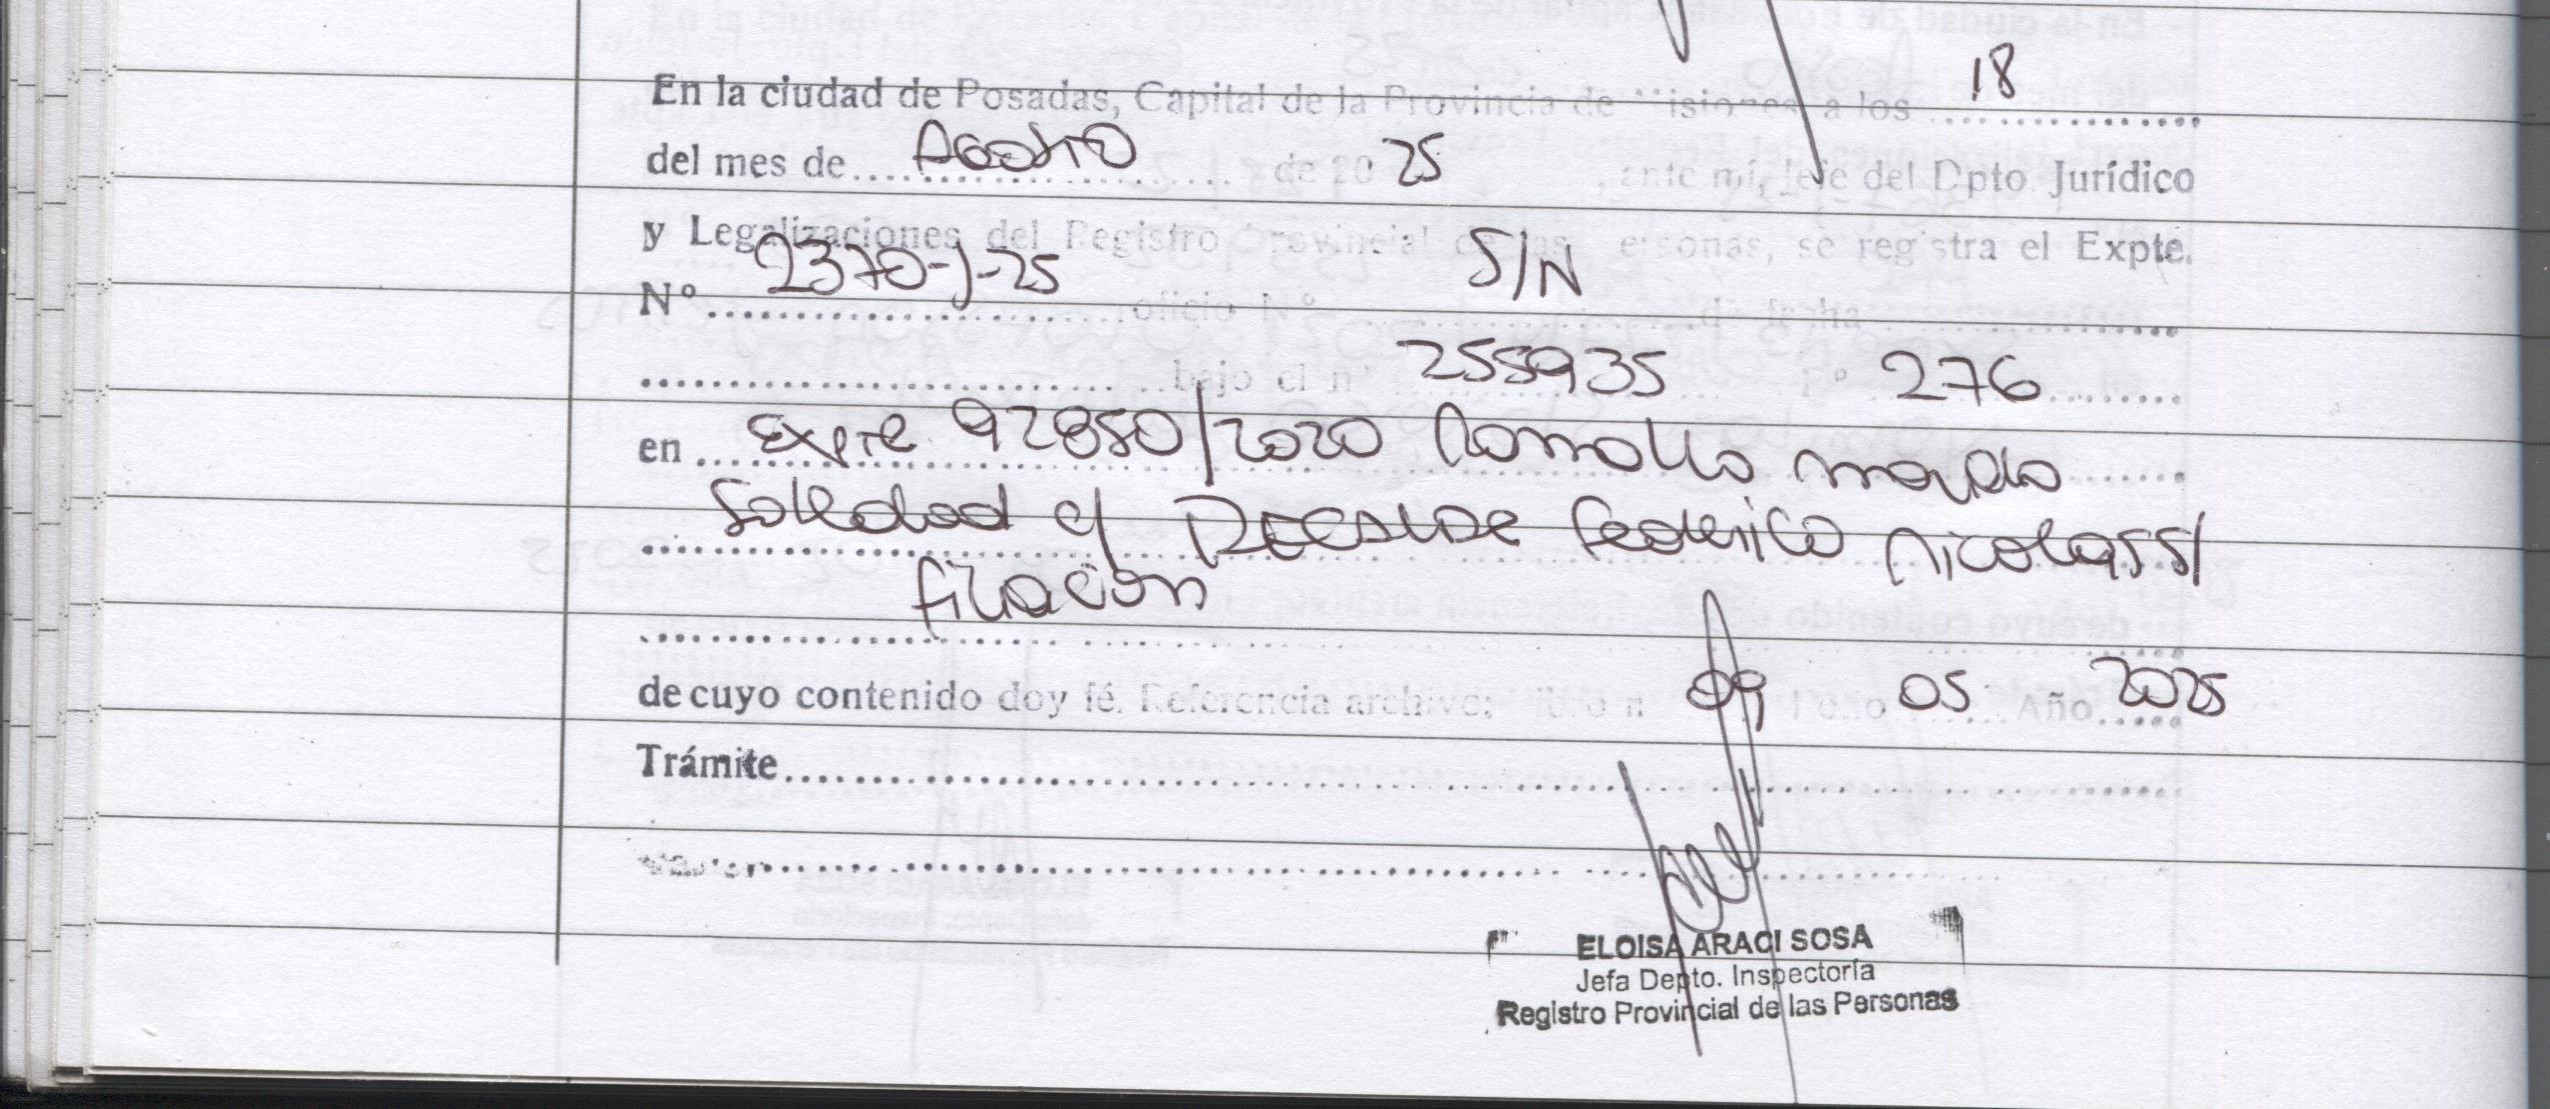 En la ciudad de Posadas, Capital de la Provincia de Misiones, a los 18
del mes de Agosto de 20 25, ante mí, Jefe del Dpto. Jurídico
y Legalizaciones del Registro Provincial de las Personas, se registra el Expte.
Nº 2370-J-25 oficio Nº S/N de fecha
bajo el nº 255935 Fº 276
en Expte 92850/2020 Romallo
Soledad c/ Federico Nicolas s/
filiación
de cuyo contenido doy fé. Referencia archivo: libro n 09 Folio 05 Año 2025
Trámite
ELOISA ARACI SOSA
Jefa Depto. Inspectoría
Registro Provincial de las Personas